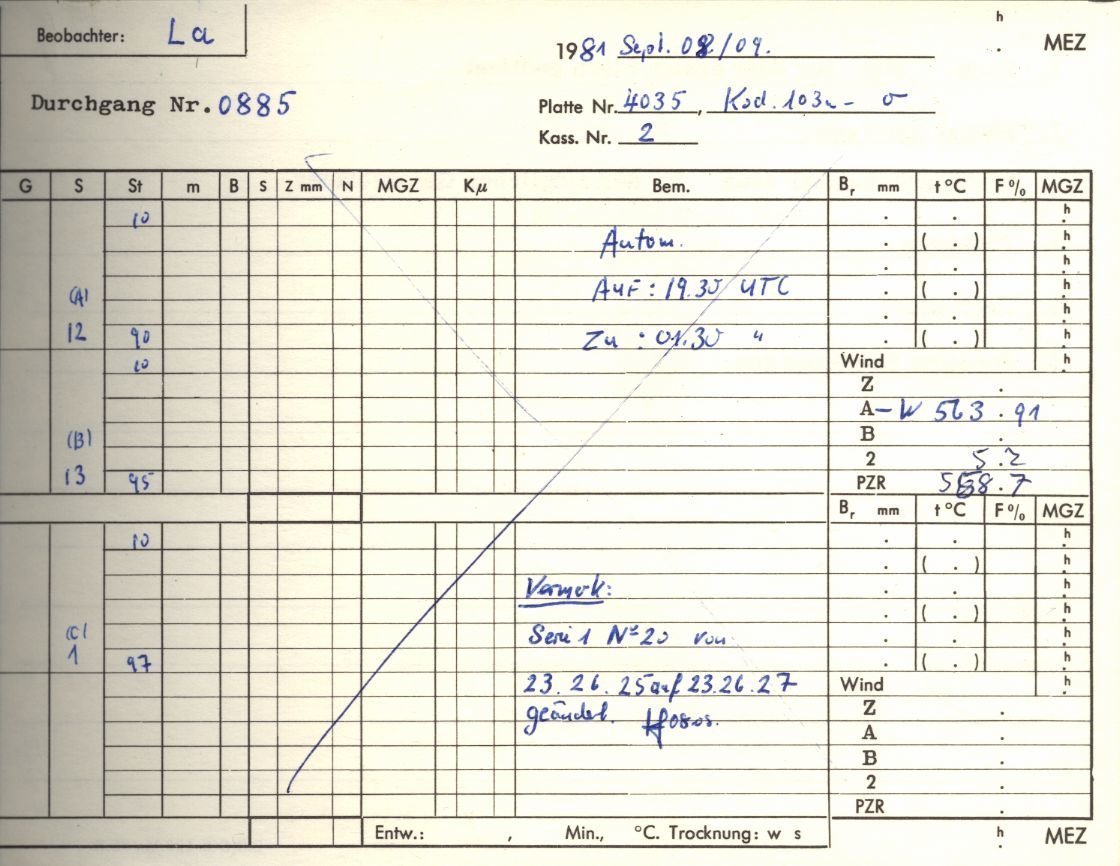 Beobachter: La
h
1981 Sept. 08/09. . MEZ
Durchgang Nr. 0885
Platte Nr. 4035, Kod. 103a- O
Kass. Nr. 2
G S St m B S Z mm N MGZ Kμ Bem. Br mm t °C F % MGZ
10 . . h
Autom. . ( . ) h
. . h
(A) Auf: 19.30 UTC . ( . ) h
. . h
12 90 Zu : 01.30 " . ( . ) h
10 Wind h
Z .
A – W 563 . 91
(B) B .
2 5 . 2
13 95 PZR 8 . 7
Br mm t °C F % MGZ
10 . . h
. ( . ) h
Vermerk: . . h
. ( . ) h
(C) Seri 1 Nº 20 von . . h
1 97 . ( . ) h
23. 26. 25 auf 23.26.27 Wind h
geändet. Z .
A .
B .
2 .
PZR .
Entw.: , Min., °C. Trocknung: w s h . MEZ